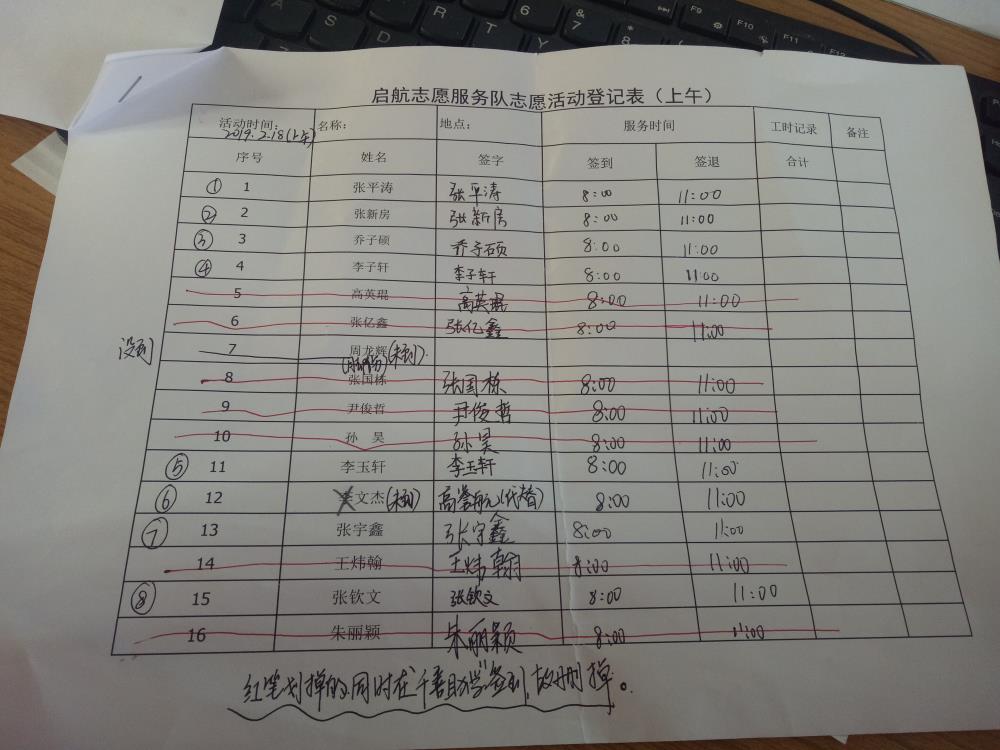 启航志愿服务队志愿活动登记表（上午）
活动时间： 2019.2.18(上午) 名称： 地点： 服务时间 工时记录 备注
序号 姓名 签字 签到 签退 合计
① 1 张平涛 张平涛 8:00 11:00
② 2 张新房 张新房 8:00 11:00
③ 3 乔子硕 乔子硕 8:00 11:00
④ 4 李子轩 李子轩 8:00 11:00
5 高英琨 高英琨 8:00 11:00
6 张亿鑫 张亿鑫 8:00 11:00
没到 7 周龙辉 (未到)
8 张国栋 张国栋 8:00 11:00
9 尹俊哲 尹俊哲 8:00 11:00
10 孙昊 孙昊 8:00 11:00
⑤ 11 李玉轩 李玉轩 8:00 11:00
⑥ 12 李文杰(未到) 高誉航(代替) 8:00 11:00
⑦ 13 张宇鑫 张宇鑫 8:00 11:00
14 王炜翰 王炜翰 8:00 11:00
⑧ 15 张钦文 张钦文 8:00 11:00
16 朱丽颖 朱丽颖 8:00 11:00
红笔划掉的同时在千善助学签到,故删掉。